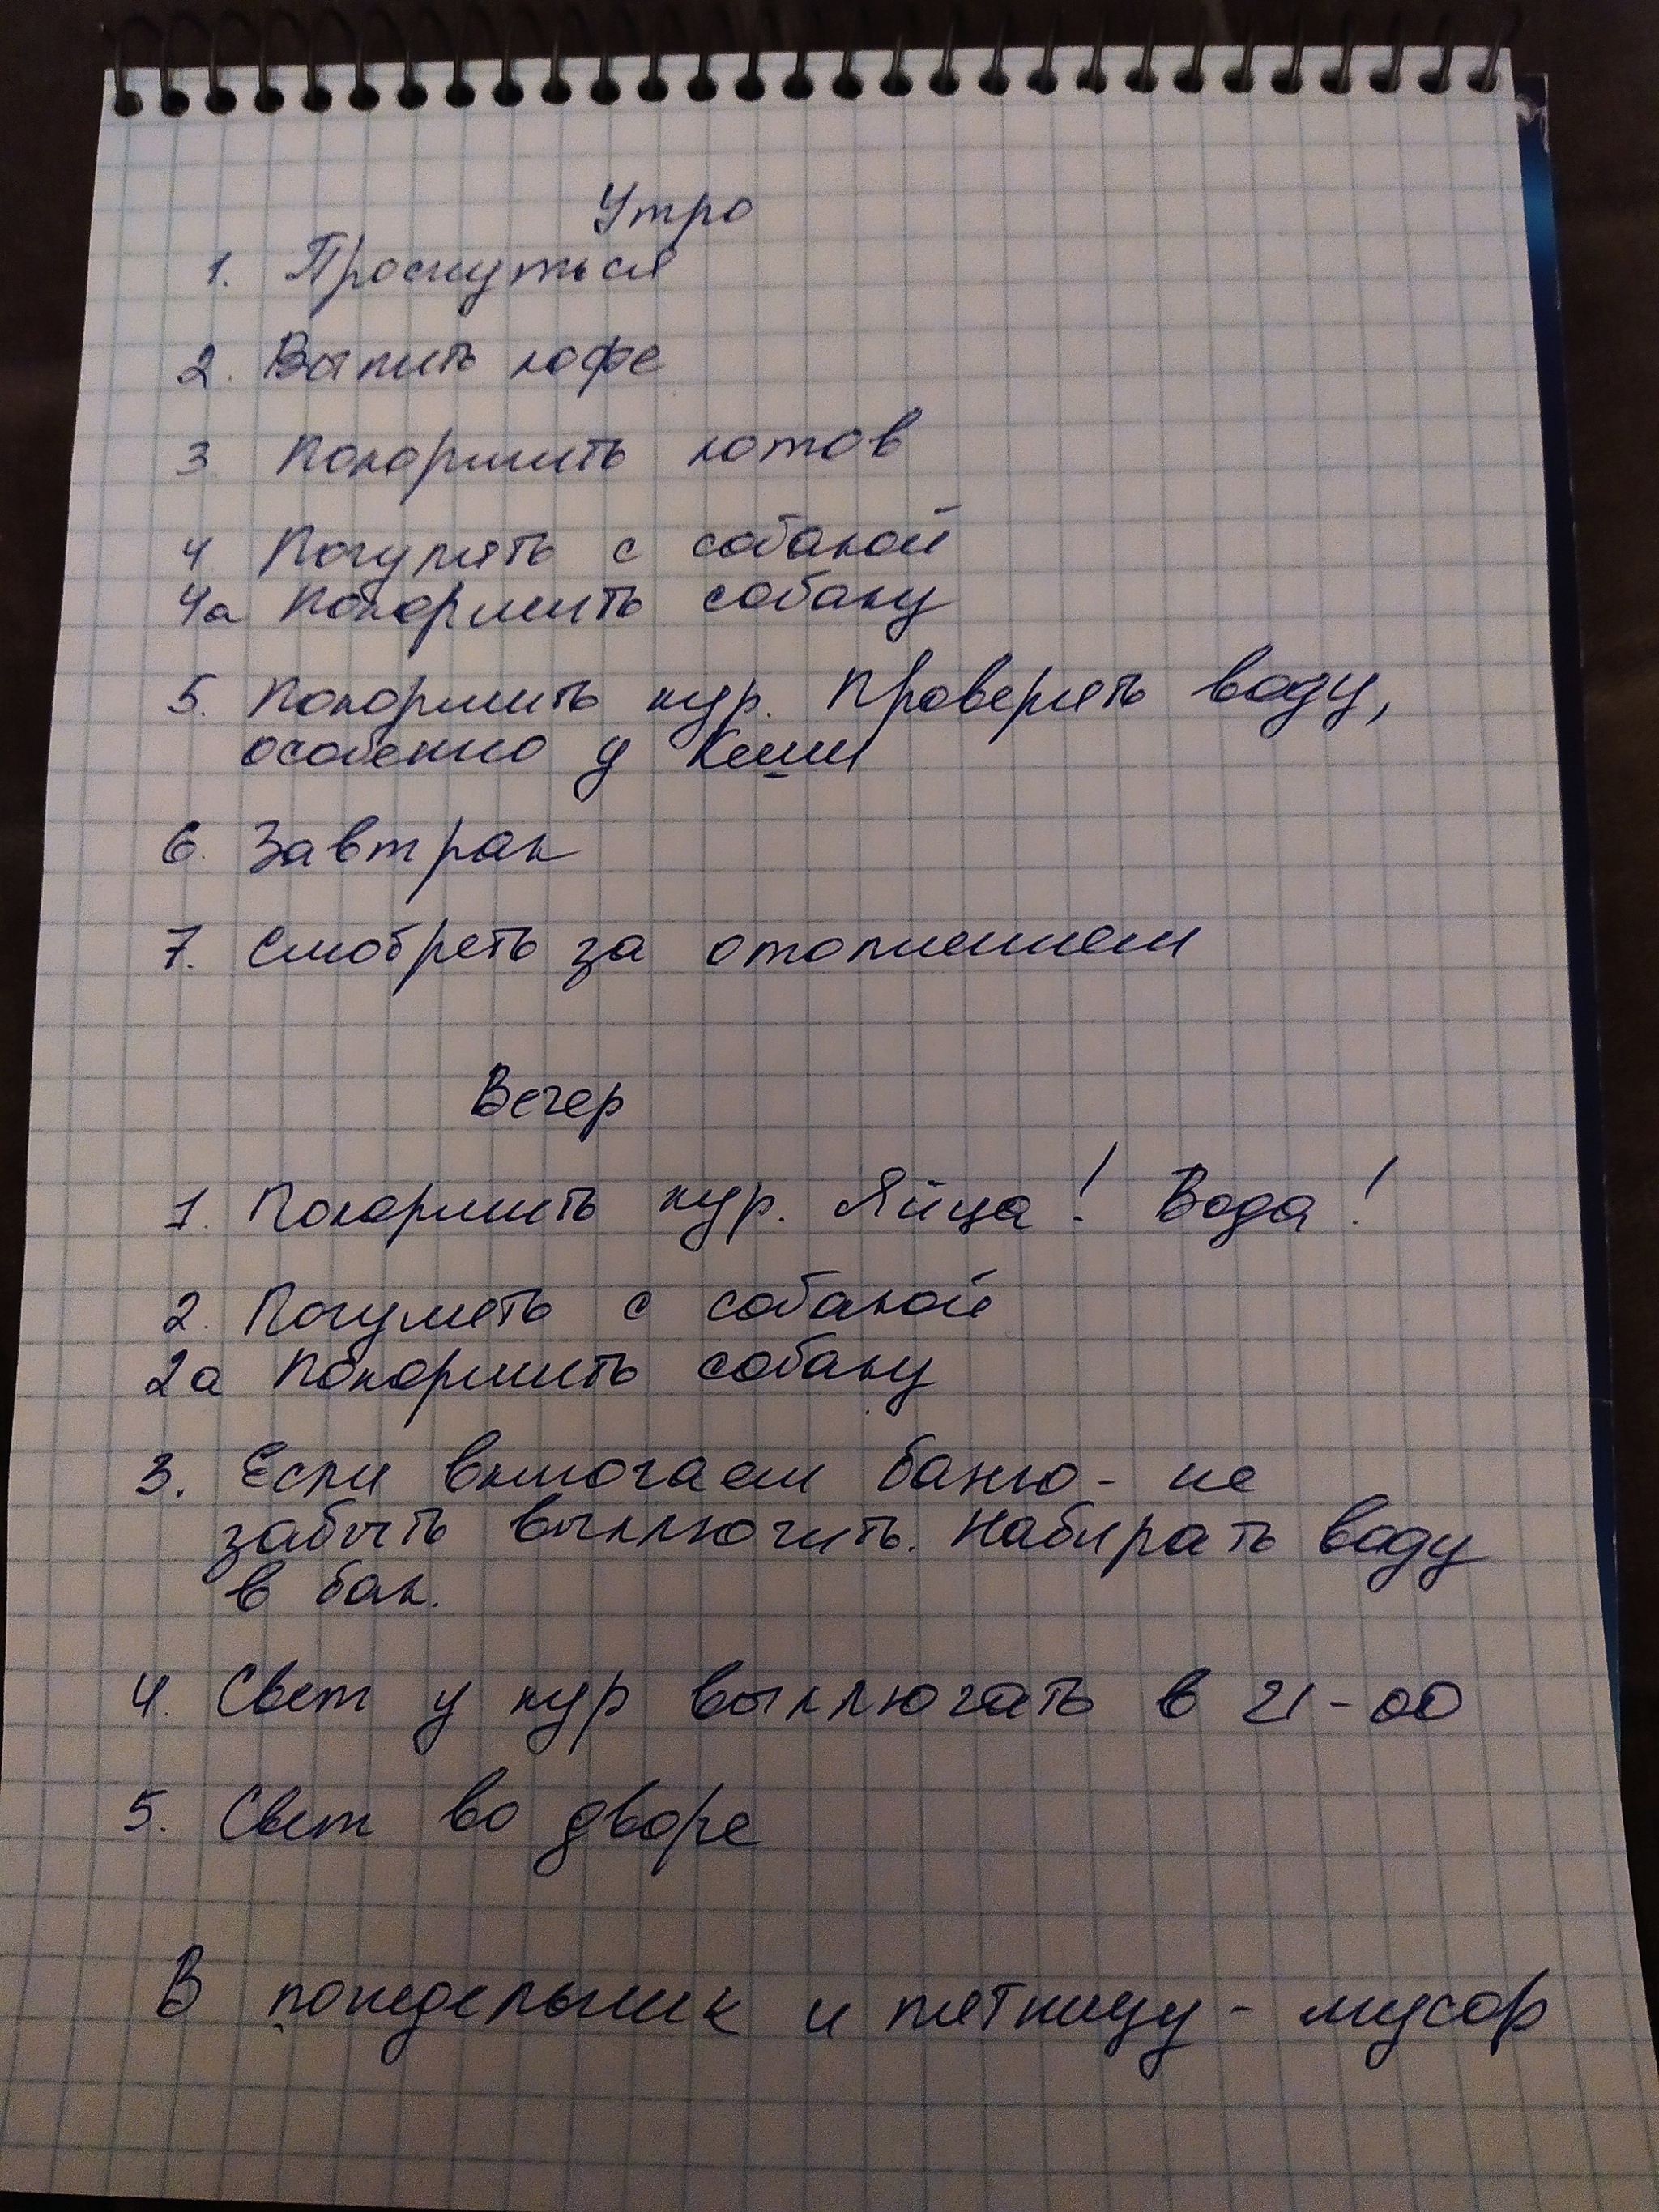 Утро
1. Проснуться
2. Выпить кофе
3 Покормить котов
4 Погулять с собакой
4а Покормить собаку
5. Покормить кур. Проверять воду,
особенно у Кеши
6. Завтрак
7. Смотреть за отоплением
Вечер
1. Покормить кур. Яйца! Вода!
2. Погулять с собакой
2а Покормить собаку
3. Если включаем баню - не
забыть выключить. Набирать воду
в бак.
4. Свет у кур выключать в 21-00
5. Свет во дворе
В понедельник и пятницу - мусор